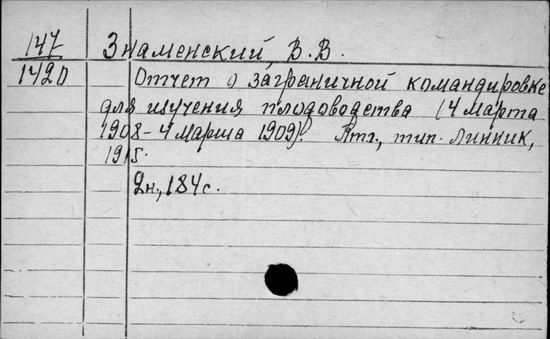 147 Знаменский, В.В.
1420 Отчет о заграничной командировке
для изучения плодоводства (4 марта
1908-4 марта 1909). Птг., тип. Линник,
1915.
2н., 184с.